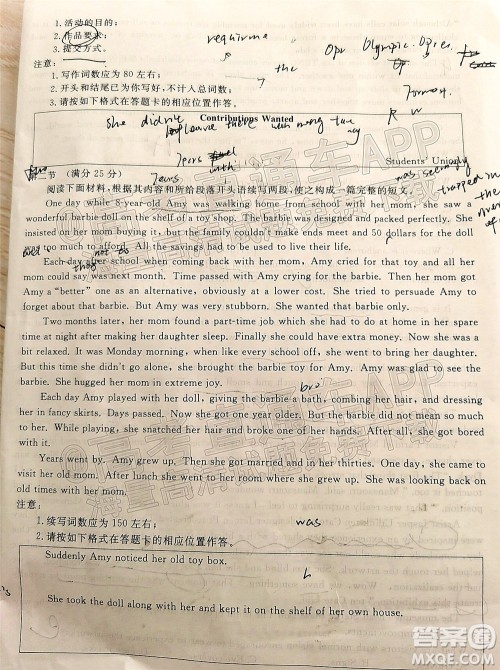 1. 活动的目的;
2. 作品要求;
3. 提交方式。
注意:
1. 写作词数应为 80 左右;
2. 开头和结尾已为你写好,不计入总词数;
3. 请按如下格式在答题卡的相应位置作答。
Contributions Wanted
she didn't
Students' Union
节 (满分 25 分)
阅读下面材料,根据其内容和所给段落开头语续写两段,使之构成一篇完整的短文。
One day while 8-year-old Amy was walking home from school with her mom, she saw a
wonderful barbie doll on the shelf of a toy shop. The barbie was designed and packed perfectly. She
insisted on her mom buying it, but the family couldn't make ends meet and 50 dollars for the doll
was too much to afford. All the savings had to be used to live their life.
Each day after school when coming back with her mom, Amy cried for the toy and all her
mom could say was next month. Time passed with Amy crying for the barbie. Then her mom got
Amy a "better" one as an alternative, obviously at a lower cost. She tried to persuade Amy to
forget about that barbie. But Amy was very stubborn. She wanted that barbie only.
Two months later, her mom found a part-time job which she had to do at home in her spare
time at night after making her daughter sleep. Finally she could have extra money. Now she was a
bit relaxed. It was Monday morning, when like every school off, she went to bring her daughter.
But this time she didn't go alone, she brought the barbie toy for Amy. Amy was glad to see the
barbie. She hugged her mom in extreme joy.
Each day Amy played with her doll, giving the barbie a bath, combing her hair, and dressing
her in fancy skirts. Days passed. Now she got one year older. But the barbie did not mean so much
to her. While playing, she scratched her hair and broke one of her hands. After all, she got bored
with it.
Years went by. Amy grew up. Then she got married and in her thirties. One day, she came to
visit her old mom. After lunch, she started roaming in the house where she grew up. She was looking back on
old times with her mom.
注意:
1. 续写词数应为 150 左右;
was
2. 请按如下格式在答题卡的相应位置作答。
Suddenly Amy noticed her old toy box.
She took the doll along with her and kept it on the shelf of her own house.
答案圈
MXQE.COM